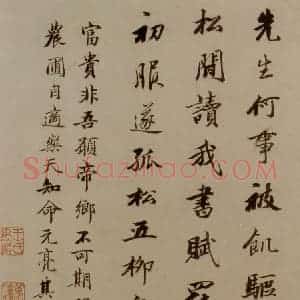 先生何事被飢驅
松間讀我書賦
初服遂孤松五柳
富貴非吾願帝鄉不可期
農圃自適樂天知命元亮其